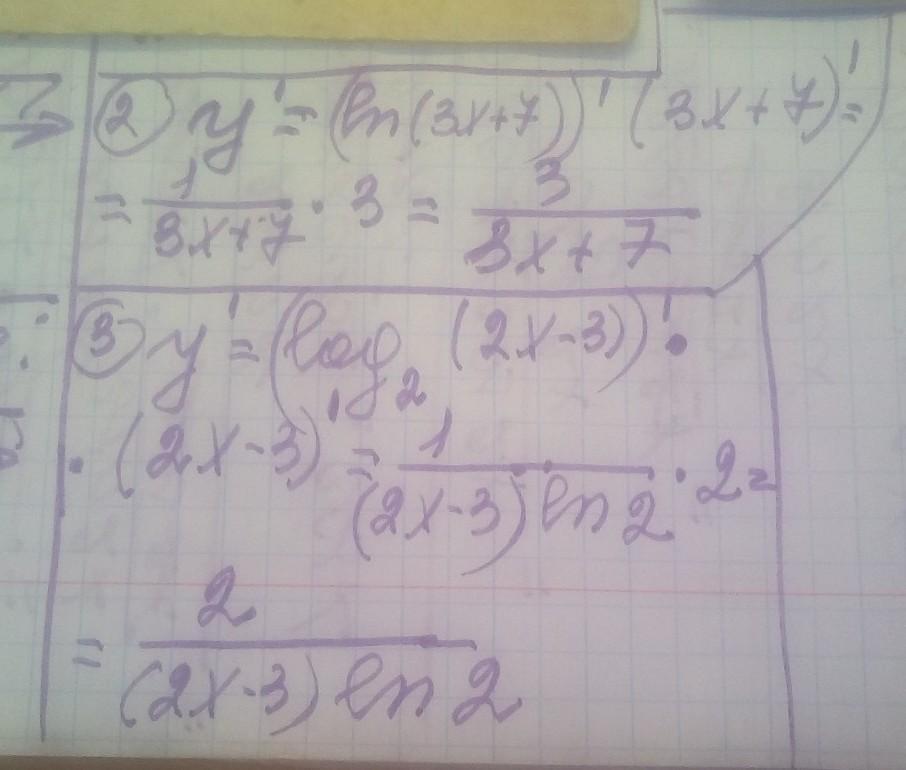 ② y' = (ln(3x+7))' (3x+7)' =
= 1/(3x+7) · 3 = 3/(3x+7)
③ y' = (log₂ (2x-3))' ·
· (2x-3)' = 1/((2x-3) ln 2) · 2 =
= 2/((2x-3) ln 2)